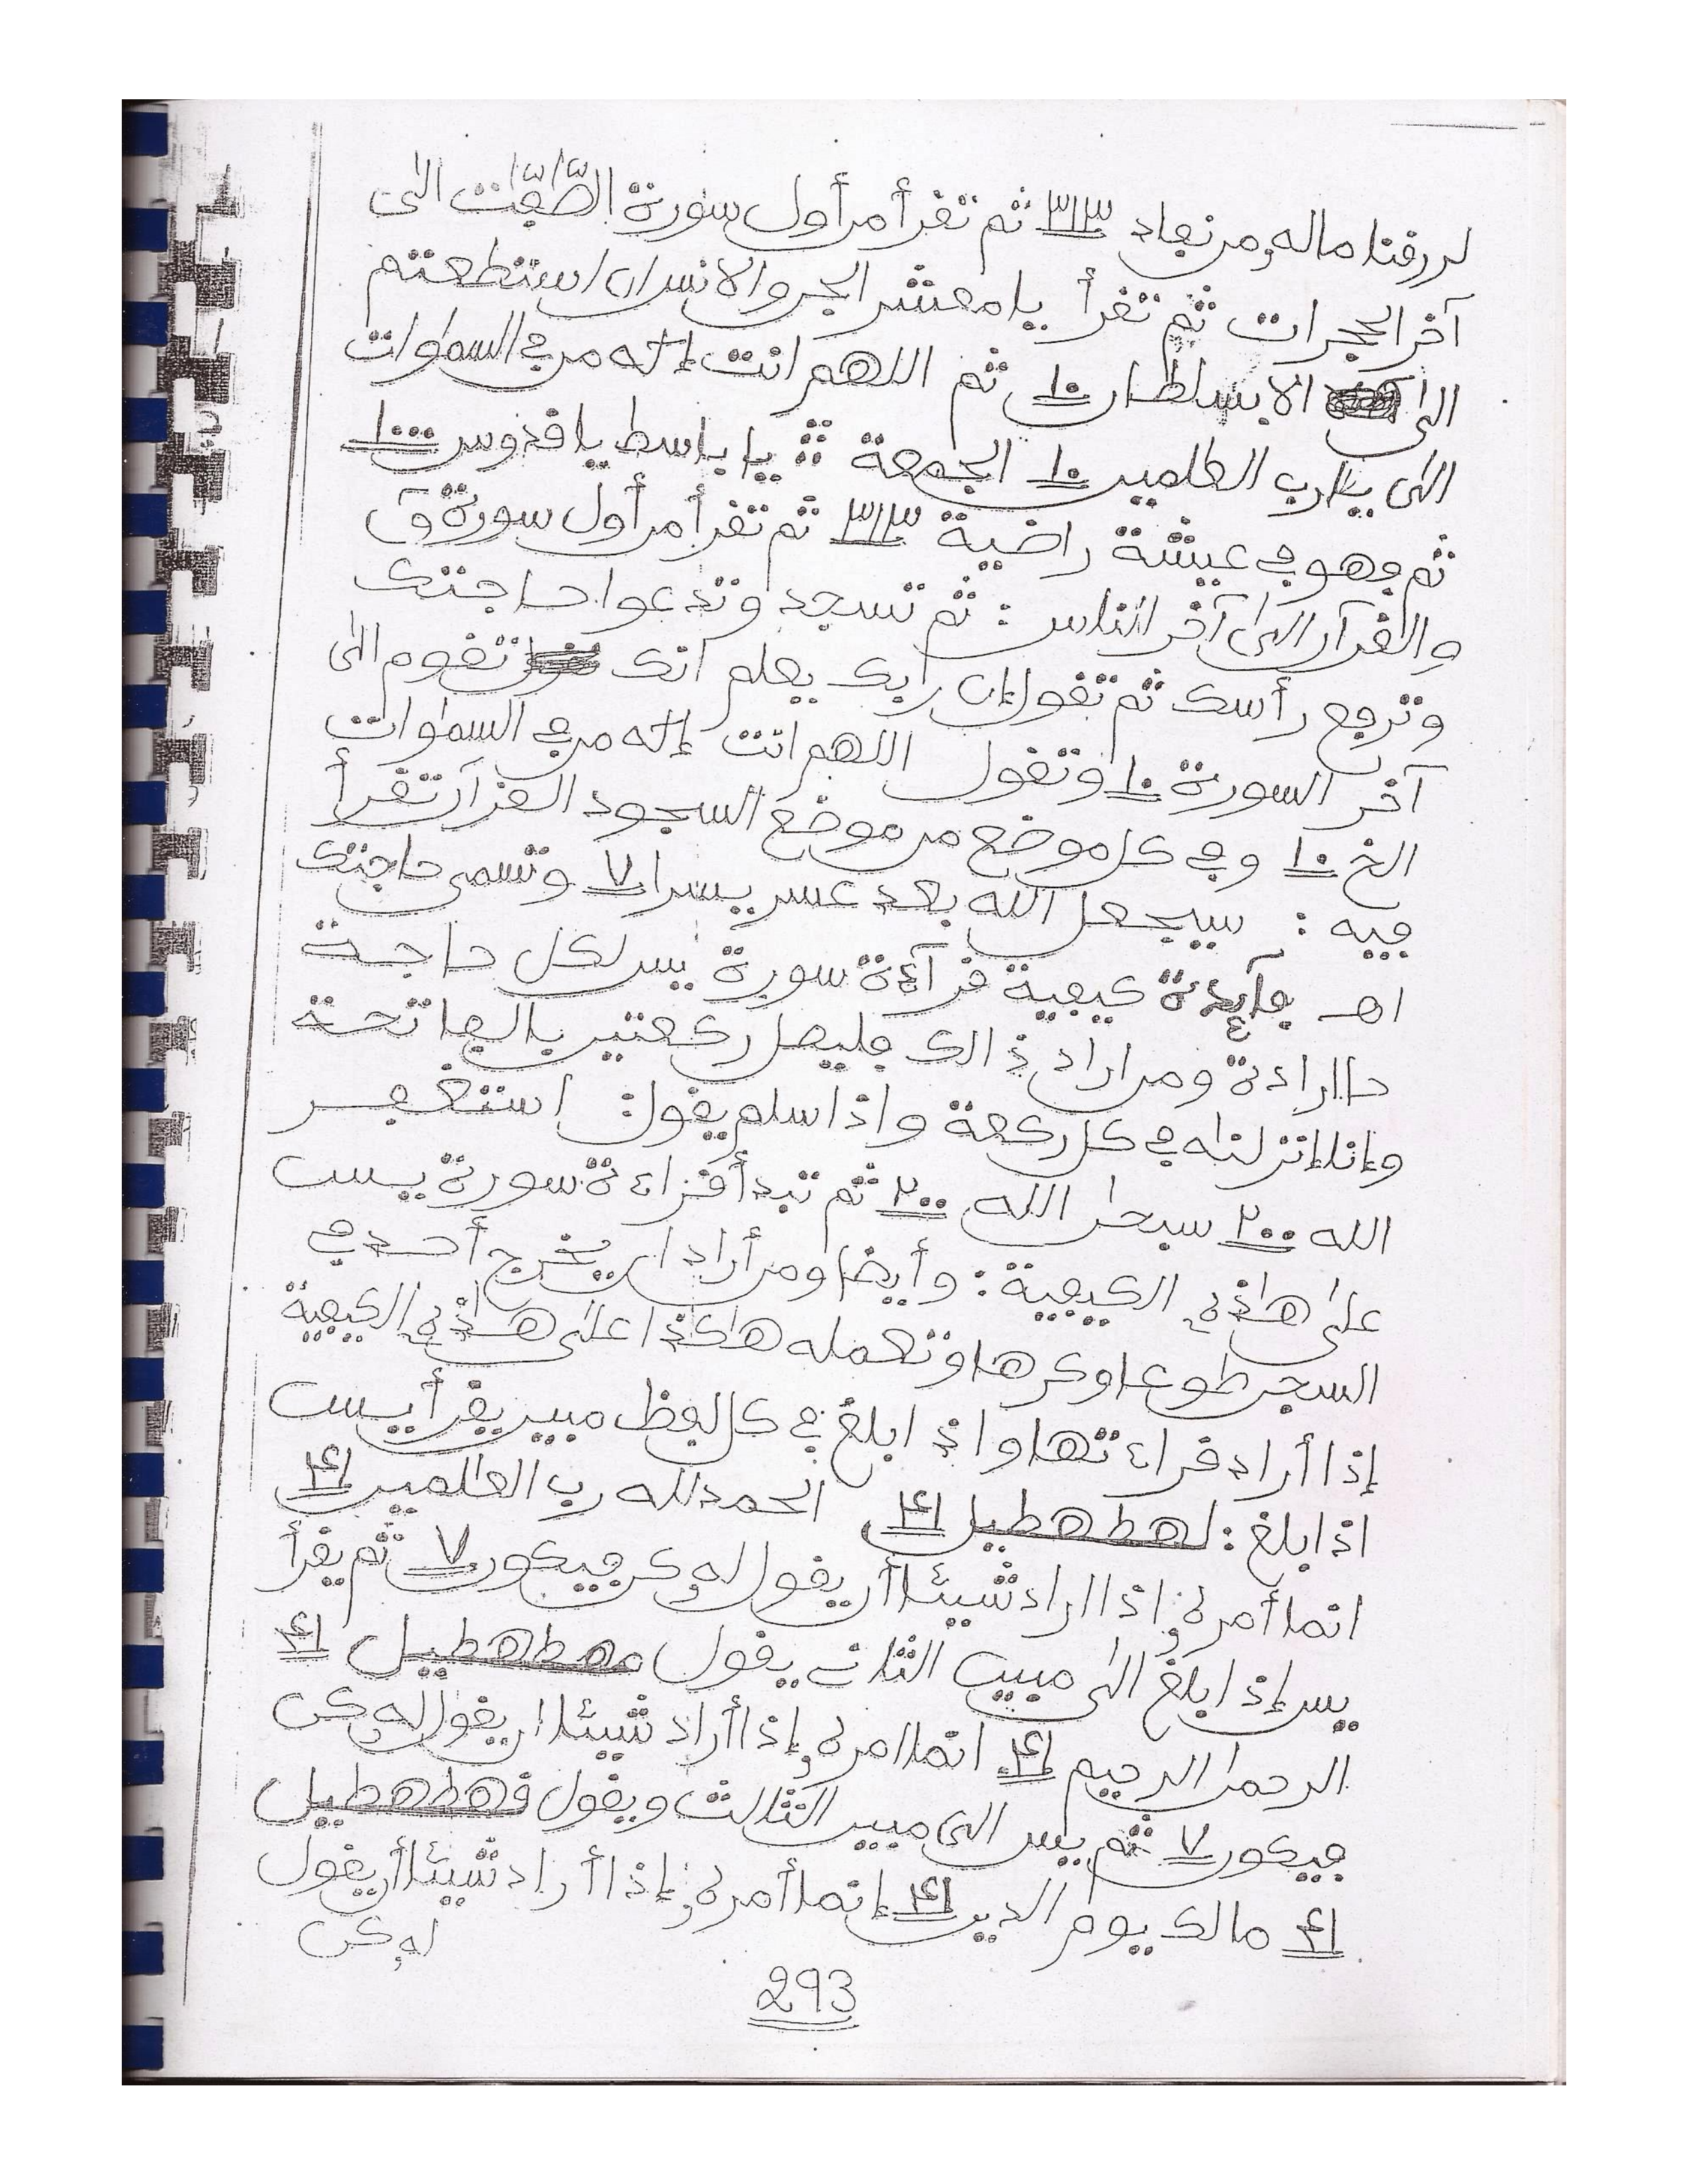 لرزقنا ماله من نفاد ٣١٣ ثم تقرأ من أول سورة الصّٰفّٰت الى
آخر الحجرات ثم تقرأ يا معشر الجن والانس ان استطعتم
الى الا بسلطان ١٠ ثم اللهم انت إله من في السموات
الى يا رب العلمين ١٠ الجمعة يا باسط يا قدوس ١٠٠٠
ثم فهو في عيشة راضية ٣١٣ ثم تقرأ من أول سورة ق
والقرآن الى آخر الناس : ثم تسجد وتدعوا حاجتك
وترفع رأسك ثم تقول إن ربك يعلم انك تقوم الى
آخر السورة ١٠ وتقول اللهم انت إله من في السموات
الخ ١٠ وفي كل موضع من موضع السجود القرآن تقرأ
فيه : سيجعل الله بعد عسر يسرا ٧ وتسمى حاجتك
اهـ فآيدة كيفية قرآءة سورة يس لكل حاجة
ومن اراد ذالك فليصل ركعتين بالفاتحة
وإنا إنزلنه في كل ركعة واذا سلم يقول : استغفر
الله ٢٠٠ سبحن الله ٢٠٠ ثم تبدأ قراءة سورة يس
على هاذه الكيفية : وأيضا ومن أراد ان يخرج أحد في
السجن طوعا وكرها وتعمله هاكذا على هذه الكيفية
إذا أراد قراءتها واذ ابلغ في كل لفظ مبين يقرأ يس
اذا بلغ : لهطهطيل ١٤ الحمد لله رب العالمين ١٤
انما أمره اذا اراد شيئا أن يقول له كن فيكون ٧ ثم يقرأ
يس إذ ابلغ الى مبين الثاني يقول مهطهطيل ١٤
الرحمن الرحيم ١٤ انما امره إذا أراد شيئا ان يقول له كن
فيكون ٧ ثم يس الى مبين الثالث ويقول قهطهطيل
١٤ مالك يوم الدين ١٤ إنما أمره إذا أراد شيئا أن يقول
له كن
293